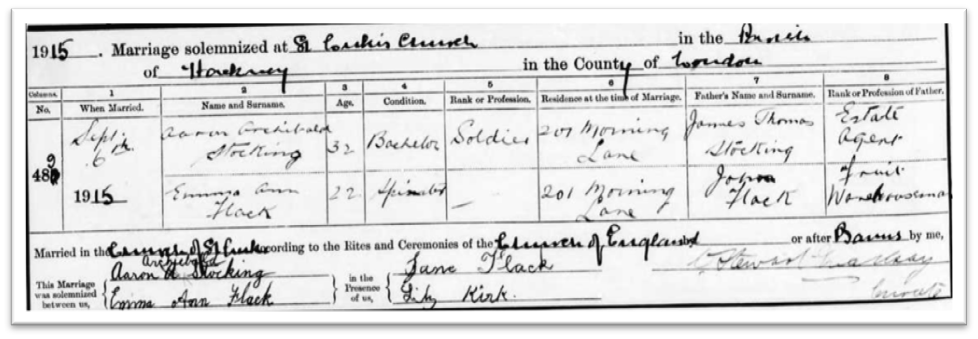 1915. Marriage solemnized at St Luke's Church in the Parish
of Hackney in the County of London
Columns. 1 2 3 4 5 6 7 8
No. When Married. Name and Surname. Age. Condition. Rank or Profession. Residence at the time of Marriage. Father's Name and Surname. Rank or Profession of Father.
489 Sept. 6th 1915 Aaron Archibald Stocking 32 Bachelor Soldier 201 Morning Lane James Thomas Stocking Estate Agent
Emma Ann Flack 22 Spinster — 201 Morning Lane Flack Fruit Warehouseman
Married in the Church of St Luke according to the Rites and Ceremonies of the Church of England by or after Banns by me,
This Marriage was solemnized between us, Aaron Archibald Stocking
Emma Ann Flack
in the Presence of us, Jane Flack
Lily Kirk.
C. Stewart
Curate